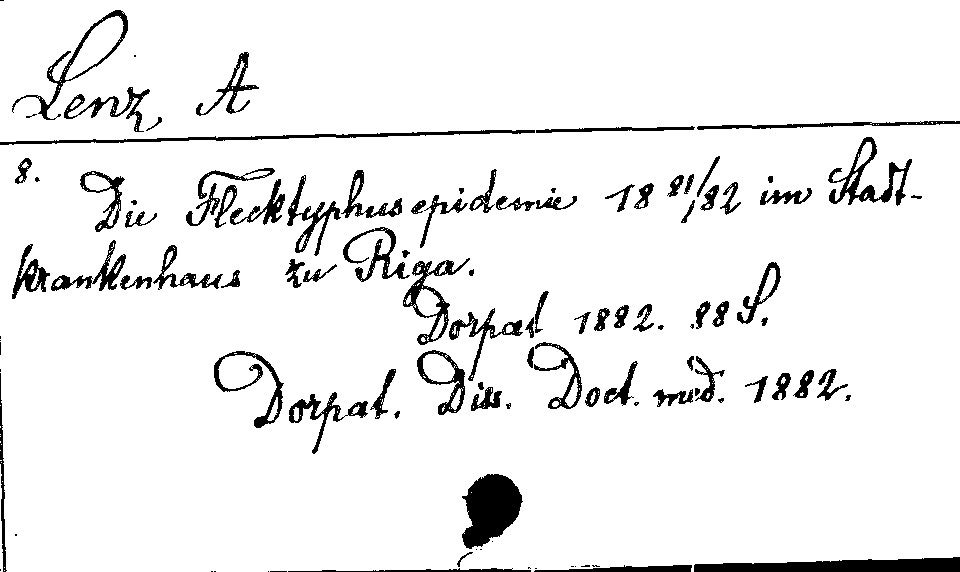 Lenz, A
8.
Die Flecktyphusepidemie 18 81/82 im Stadt-
krankenhaus zu Riga.
Dorpat 1882. 88 S.
Dorpat. Diss. Doct. med. 1882.